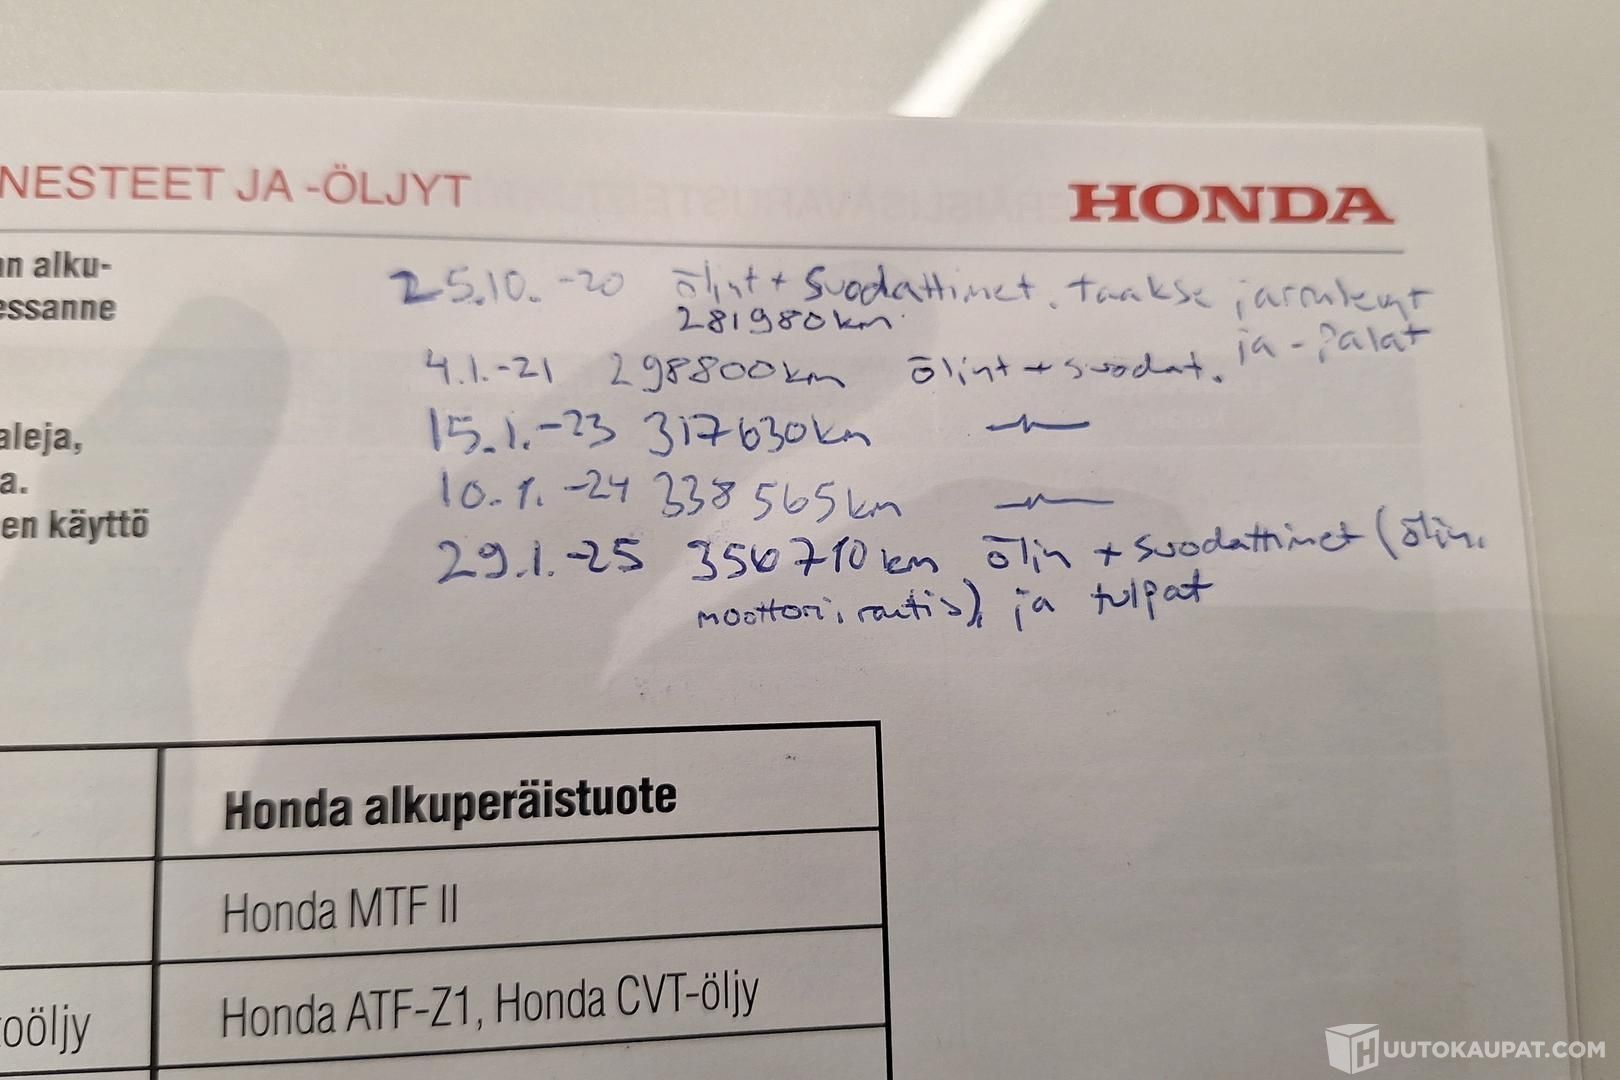 NESTEET JA -ÖLJYT
HONDA
an alku-
essanne
aleja,
a.
en käyttö
25.10.-20 öljyt + suodattimet. taakse jarrulevyt
281980km.
ja -palat
4.1.-21 298800km öljyt + suodat.
15.1.-23 317630km
10.1.-24 338565km
29.1.-25 356710km öljy + suodattimet (öljy,
moottori, raitis), ja tulpat
Honda alkuperäistuote
Honda MTF II
oöljy
Honda ATF-Z1, Honda CVT-öljy
HUUTOKAUPAT.COM